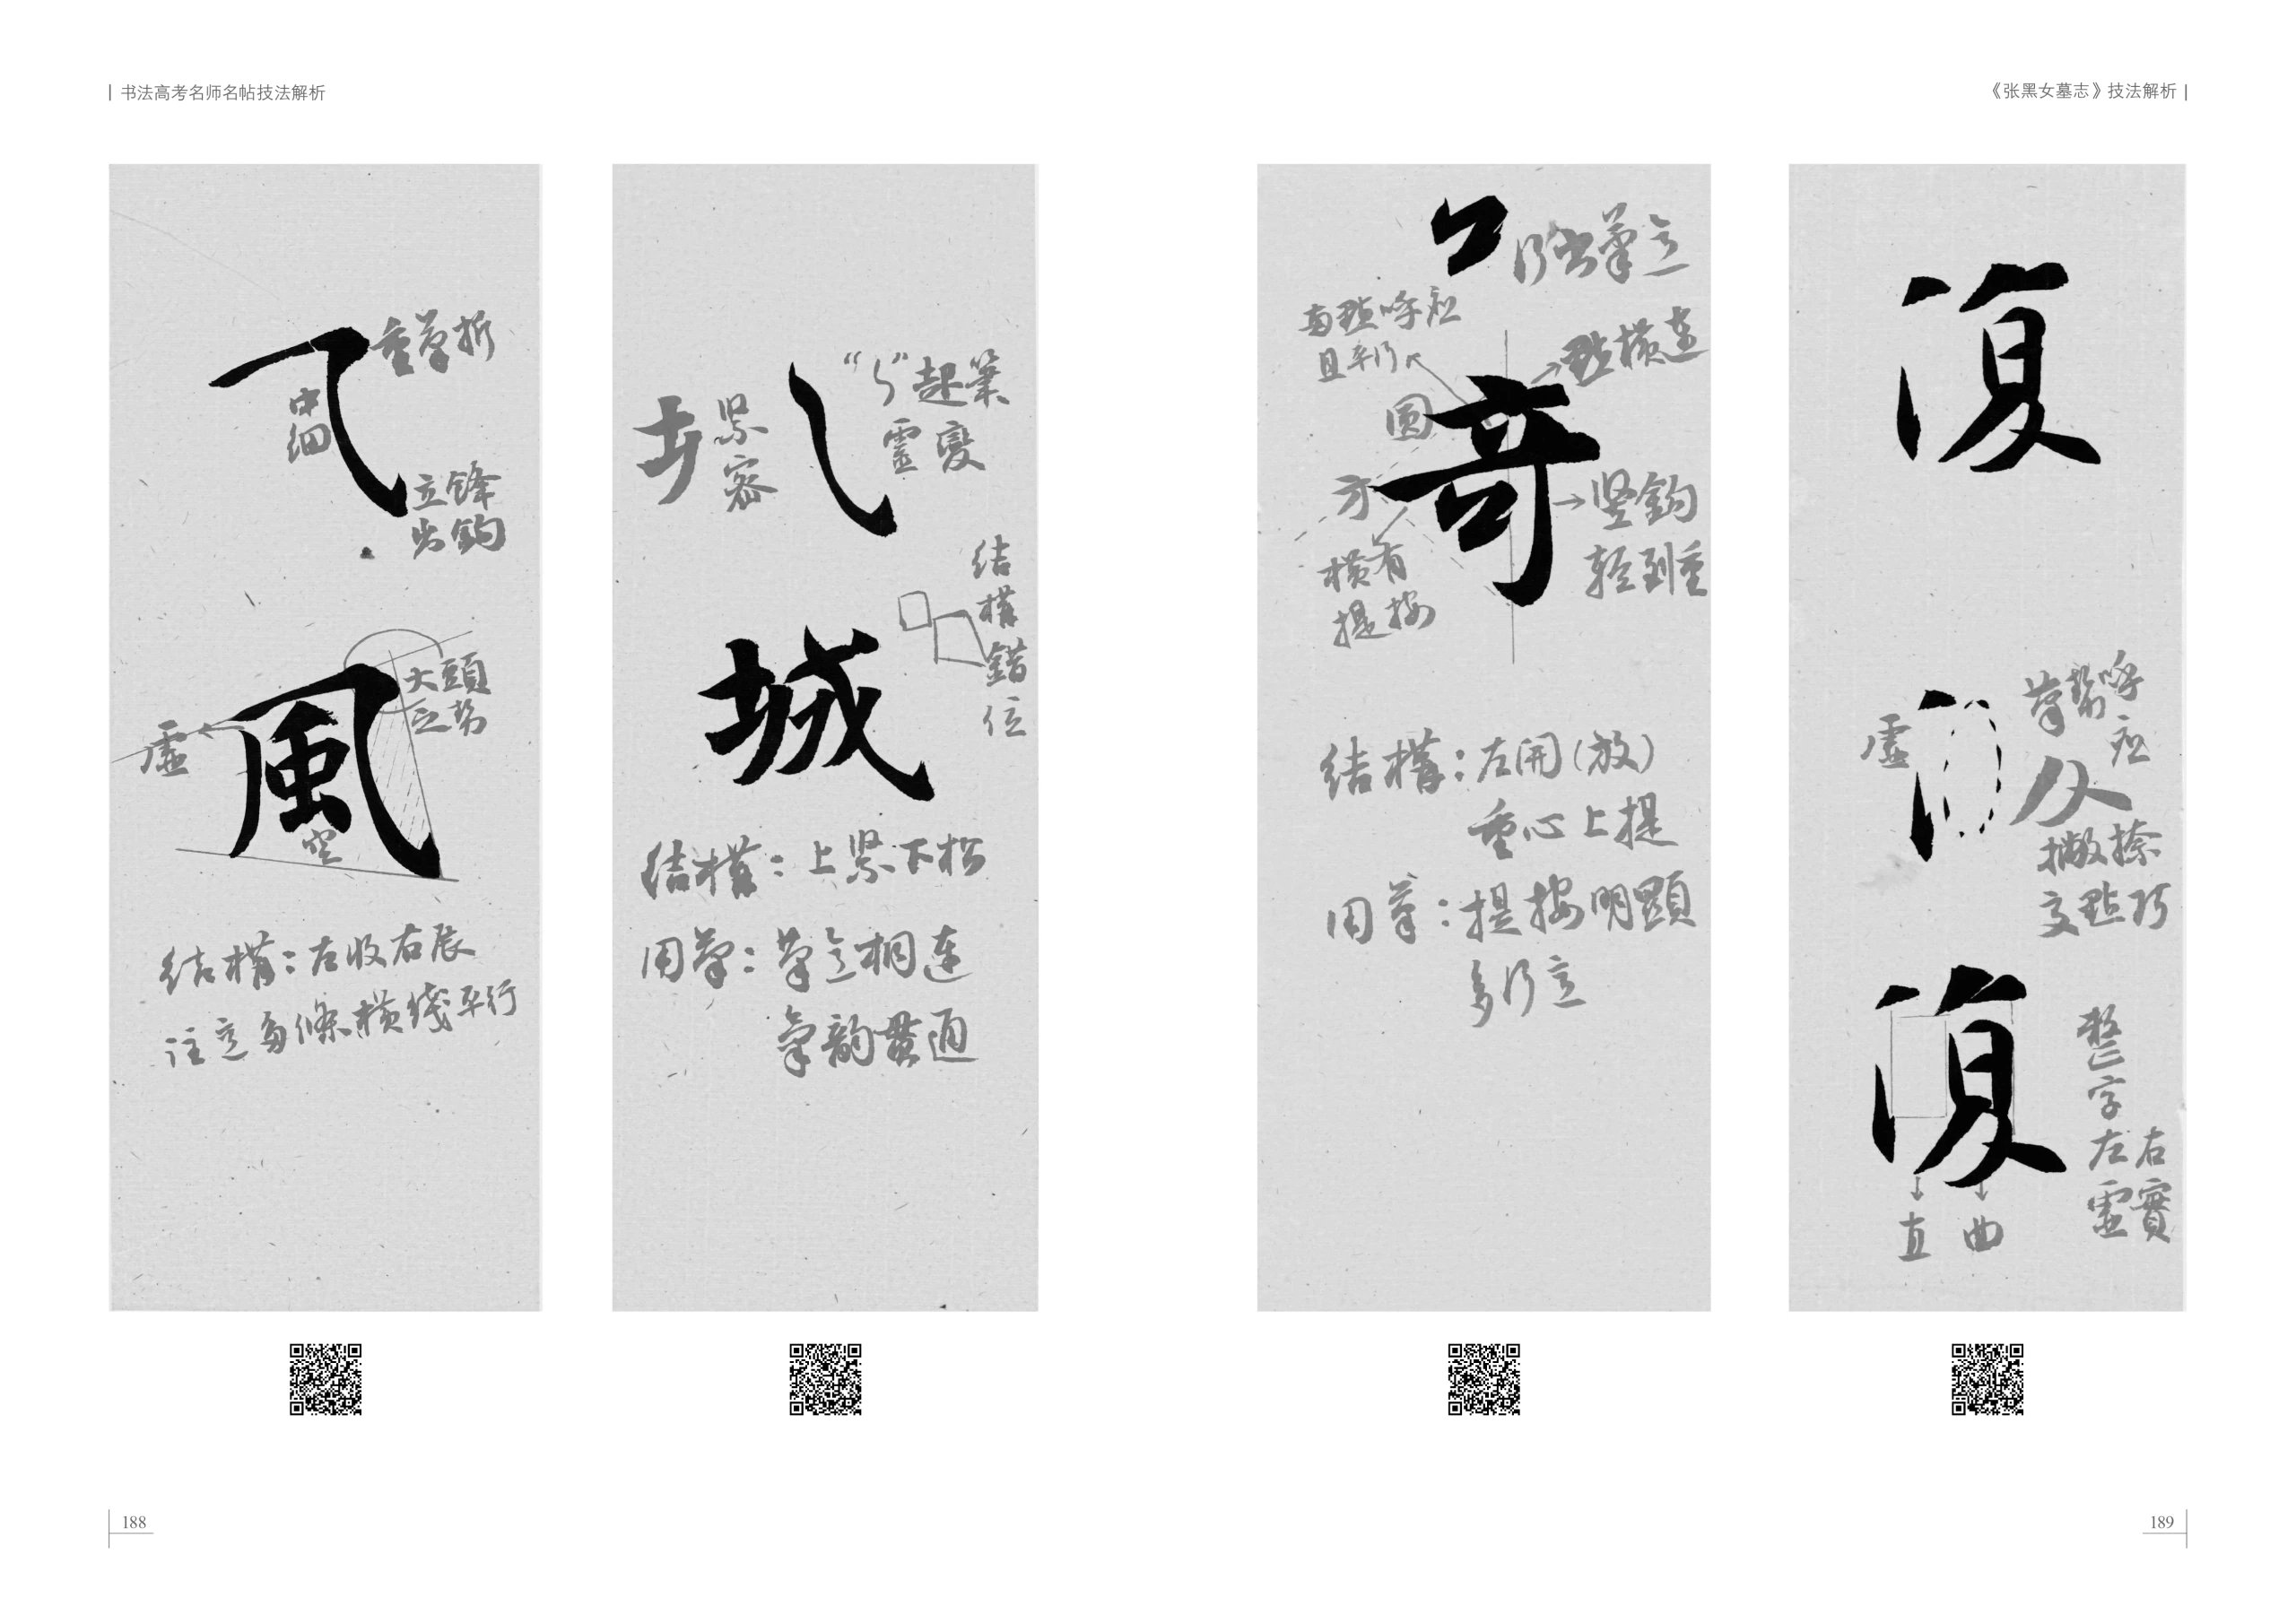 书法高考名师名帖技法解析
重笔折
中细
立锋
出鈎
風
大頭
之势
虚
空
结構：左收右展
注意多條横线平行
"ㄣ"起筆
靈變
紧密
结構錯位
城
结構：上紧下松
用笔：笔意相連
氣韵貫通
188
《张黑女墓志》技法解析
口
行书筆意
两點呼应
且平行
點横連
圆
方
奇
竖鈎
轻到重
横有
提按
结構：左開（放）
重心上提
用笔：提按明顯
多行意
復
笔势呼应
虚
撇捺
交點巧
復
整字
左虚
右實
直
曲
189